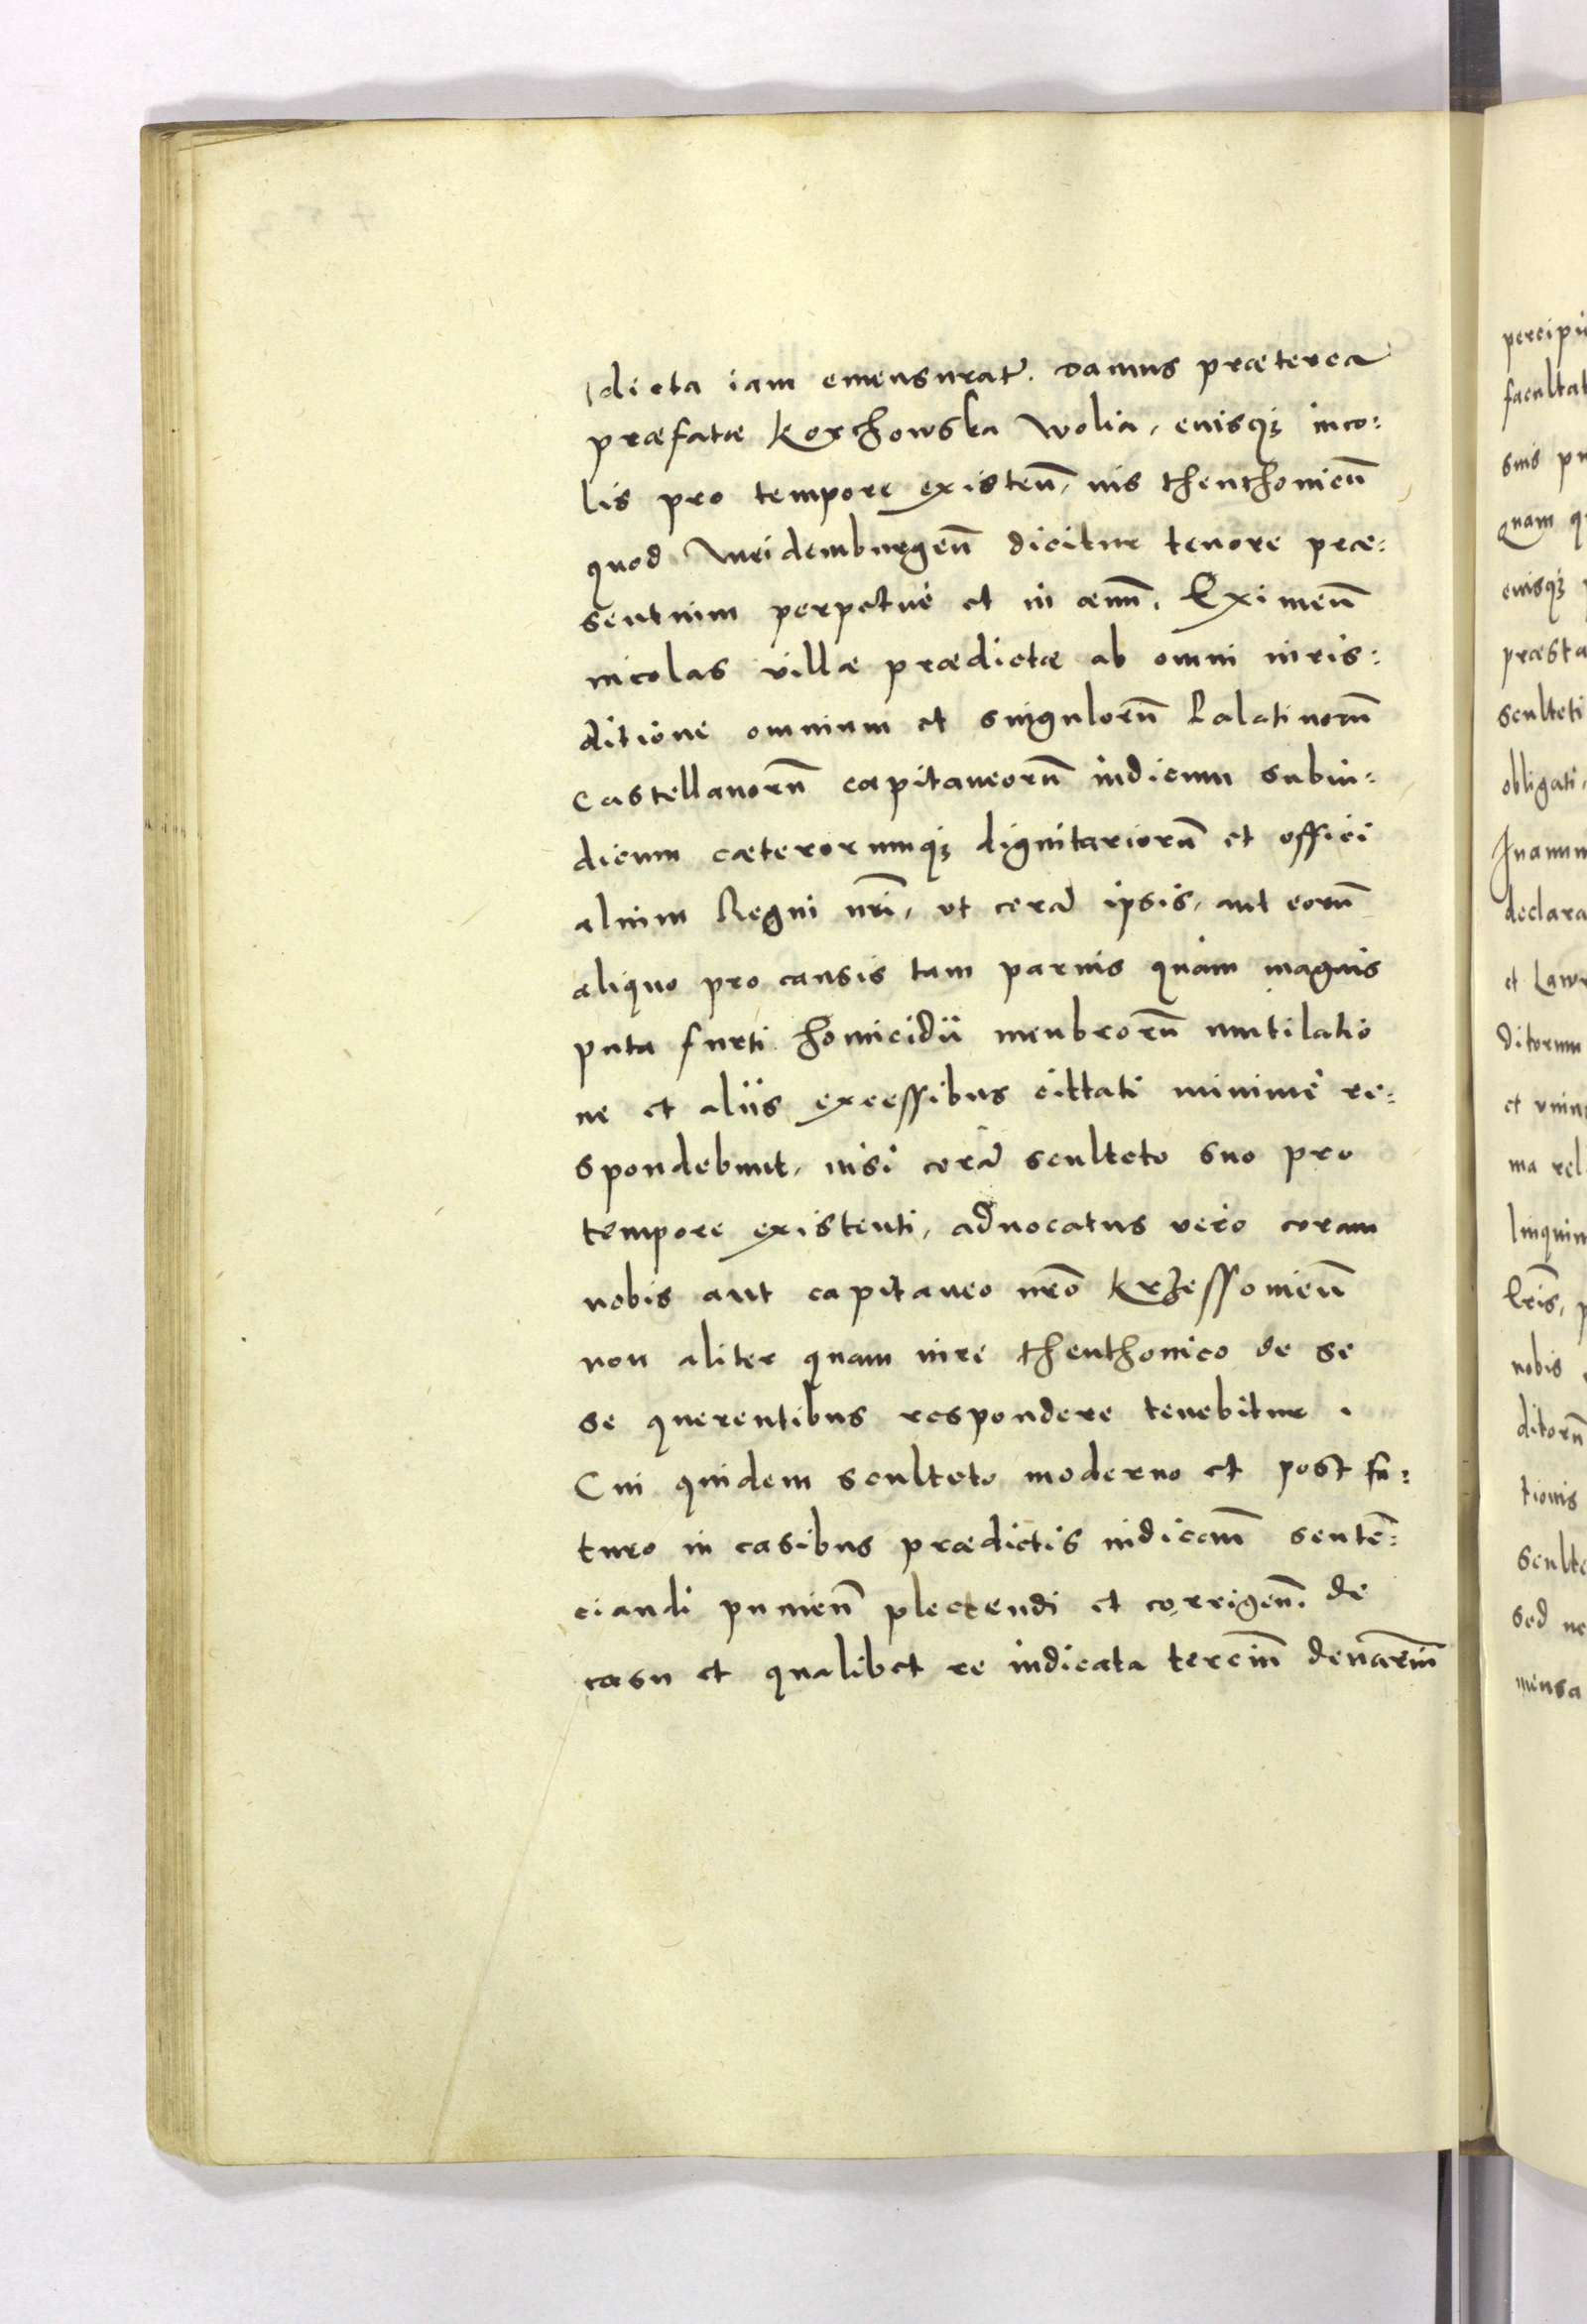 dicta iam emensuratur̃. Damus præterea
præfatæ Korchowska Wolia, euisq₃ inco:
lis pro tempore existeñ, ius thenthonicũ
quod Meidemburgeñ dicitur tenore præ:
sentuim perpetué et in æuũ. Eximeñ
incolas villæ prædictæ ab omni iuris:
ditione omnium et singulorũ Palatinorũ
Castellanorũ capitaneorũ iudicum subiu:
dicum cæterorumq₃ dignitariorũ et offici
alium Regni nr̃i, vt corã ipsis, aut eorũ
aliquo pro causis tam paruis quàm magnis
puta furti homicidii menbrorũ mutilatio
ne et aliis excessibus cittati minimé re:
spondebunt, nisi corã sculteto suo pro
tempore existenti, aduocatus vero coram
nobis aut capitaneo nr̃o Krzessouieñ
non aliter quam iure thenthonico de se
se querentibus respondere tenebitur.
Cui quidem sculteto moderno et post fu:
turo in casibus prædictis iudicañ senteñ:
ciandi punieñ plectendi et corrigeñ. de
casu et qualibet re iudicata terciũ denariũ
percipi
facultat
suis pu
quam q
euisq₃
præsta
sculteti
obligati,
declara
et Law
ditorum
et vniu
ma rel
linquim
nobis
ditorũ
tionis
sculte
sed ne
mensa